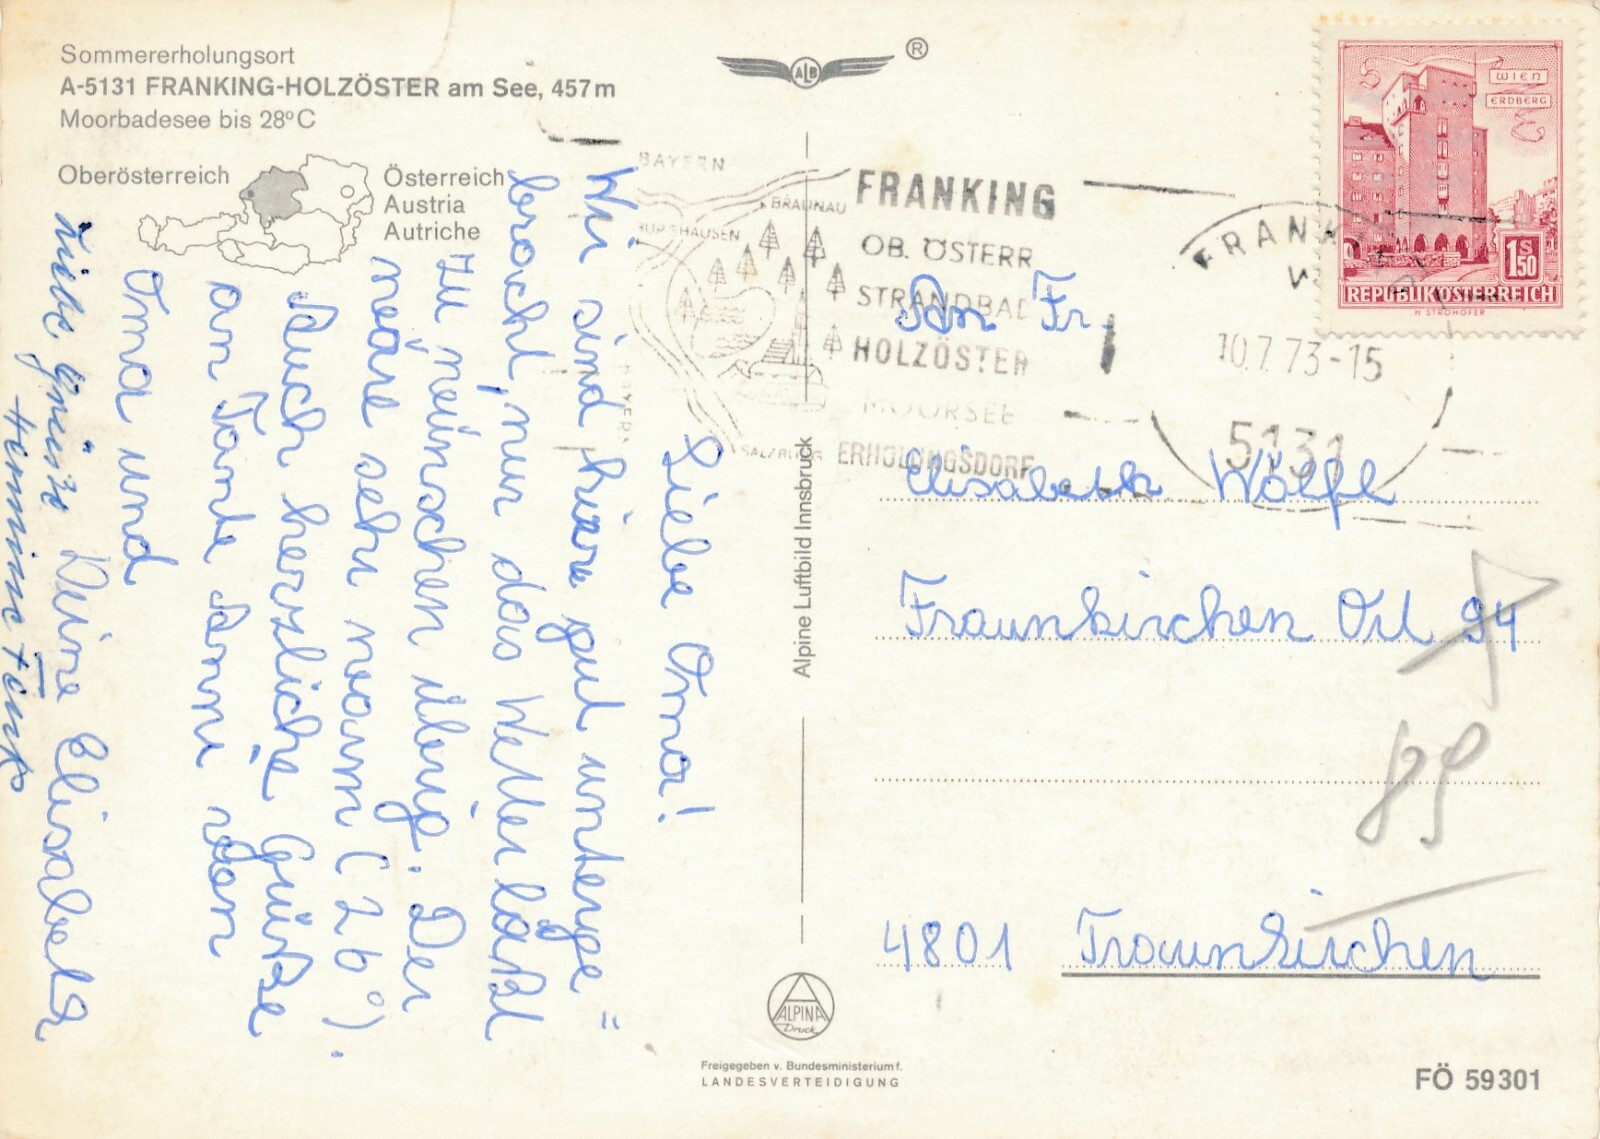 Sommererholungsort
A-5131 FRANKING-HOLZÖSTER am See, 457m
Moorbadesee bis 28°C
Oberösterreich
Österreich
Austria
Autriche
ALB
®
Liebe Oma!
Wir sind hier gut unterge=
bracht, nur das Wetter läßt
zu wünschen übrig. Der
See wäre sehr warm (26°).
Auch herzliche Grüße
an Tante Anni von
Oma und
Deine Elisabeth
Liebe Grüße
Hermine Fink
Alpine Luftbild Innsbruck
ALPINA
Druck
Freigegeben v. Bundesministerium f.
LANDESVERTEIDIGUNG
BAYERN
BRAUNAU
BURGHAUSEN
BAYERN
SALZBURG
FRANKING
OB. ÖSTERR
STRANDBAD
HOLZÖSTER
MOORSEE
ERHOLUNGSDORF
FRANKING
10.7.73-15
5131
WIEN
ERDBERG
1S50
REPUBLIK ÖSTERREICH
H. STROHOFER
An Fr.
Elisabeth Wölfl
Traunkirchen Ort 94
89
4801 Traunkirchen
FÖ 59301